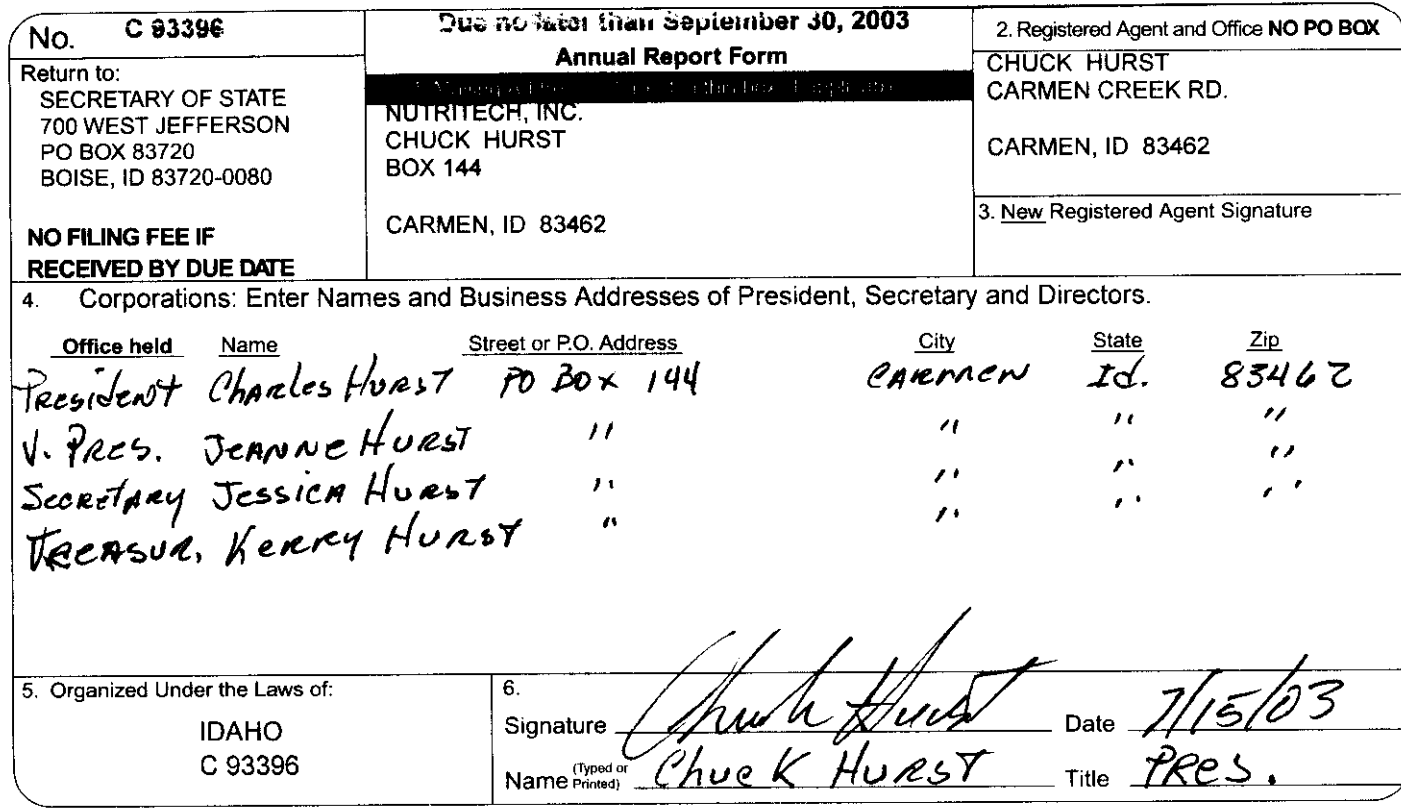 No. C 93396
Return to:
SECRETARY OF STATE
700 WEST JEFFERSON
PO BOX 83720
BOISE, ID 83720-0080
NO FILING FEE IF
RECEIVED BY DUE DATE
Due no later than September 30, 2003
Annual Report Form
NUTRITECH, INC.
CHUCK HURST
BOX 144
CARMEN, ID 83462
2. Registered Agent and Office NO PO BOX
CHUCK HURST
CARMEN CREEK RD.
CARMEN, ID 83462
3. New Registered Agent Signature
4. Corporations: Enter Names and Business Addresses of President, Secretary and Directors.
Office held Name Street or P.O. Address City State Zip
President Charles Hurst PO Box 144 CARMEN Id. 83462
V. PRES. JEANNE HURST " " " "
Secretary Jessica Hurst " " " "
TREASUR. Kerrey Hurst " " " "
5. Organized Under the Laws of:
IDAHO
C 93396
6.
Signature Chuck Hurst Date 7/15/03
Name (Typed or Printed) Chuck HURST Title PRES.